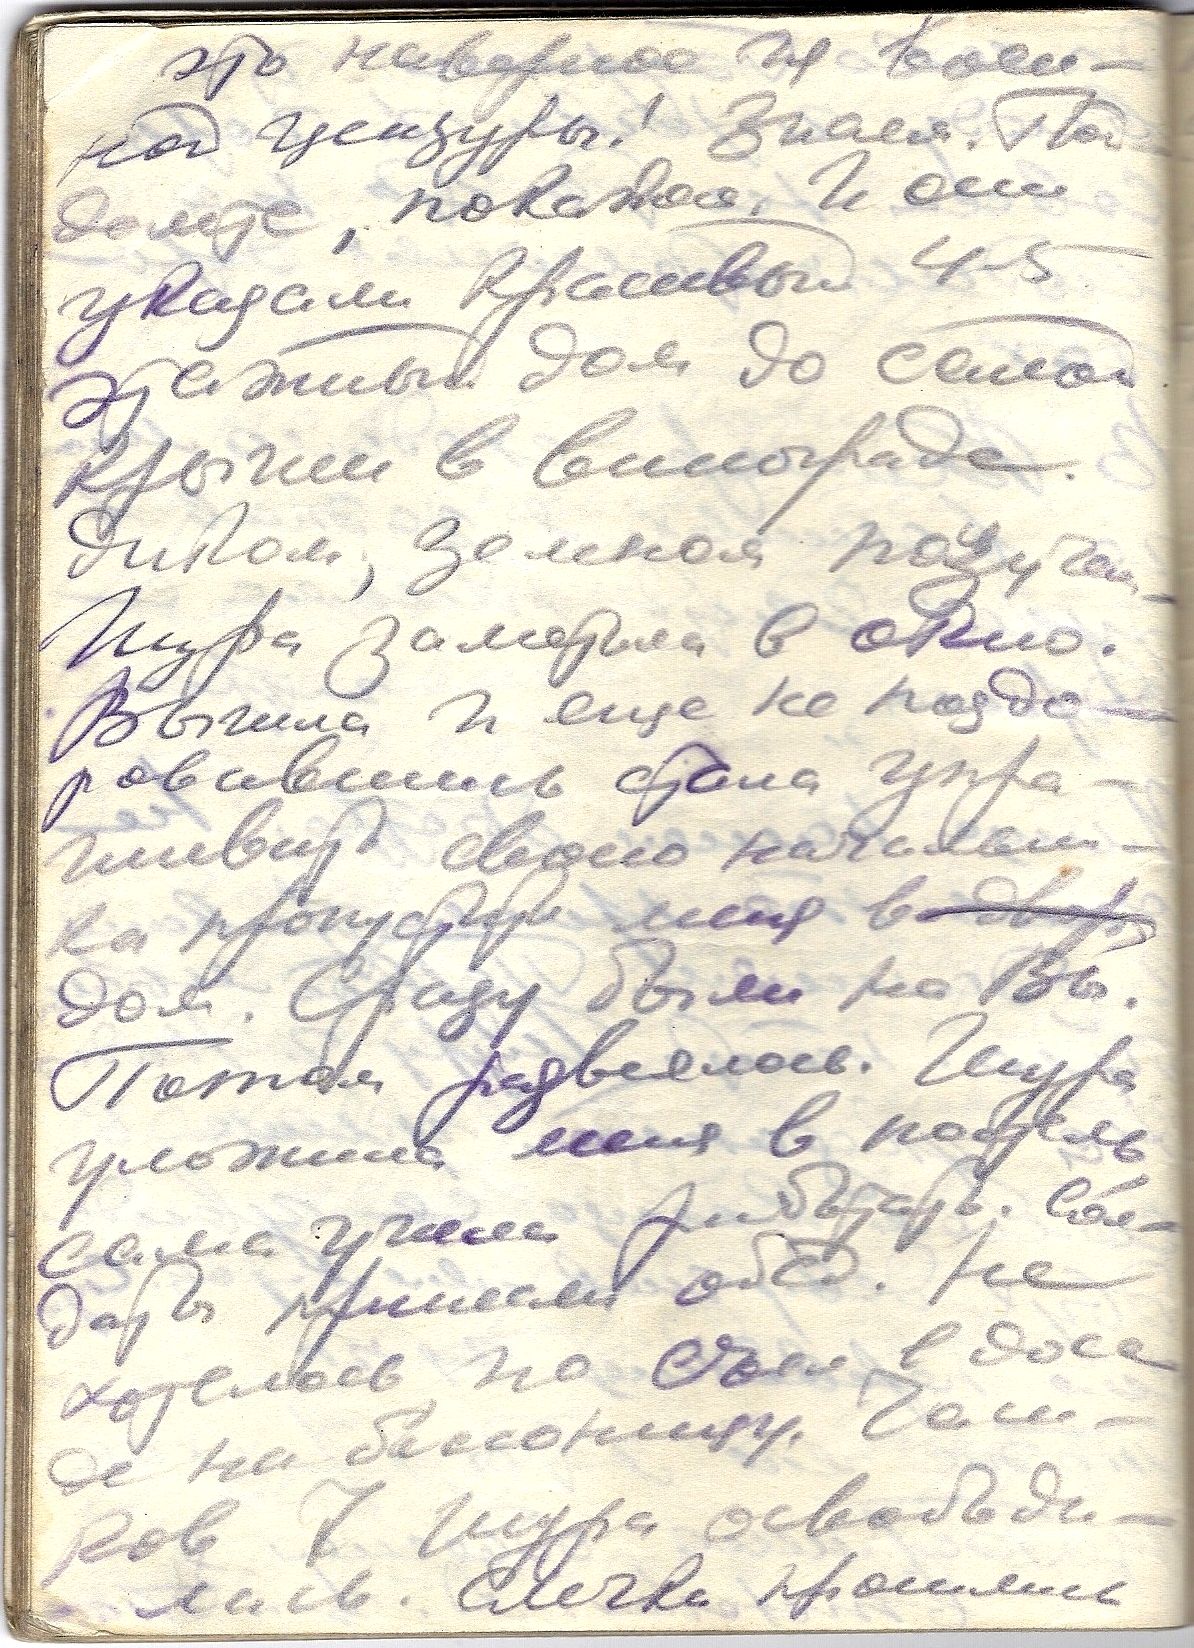 это наверное из воен-
ной цензуры! Знаем. Пой-
демте, покажем. И они
указали красивый 4-5
этажный дом до самой
крыши в винограде.
диком,
Шура заметила в окно.
Вышла и еще не поздо-
ровавшись стала упра-
шивать своего начальни-
ка пропустить меня в двор
дом. Сразу были на Вы.
Потом развеялось. Шура
уложила меня в постель
сама ушла работать. Сол-
даты принесли обед. Не
хотелось, но съела
на бессонницу. Часи-
ков 7 Шура освободи-
лась. Слегка прошлись